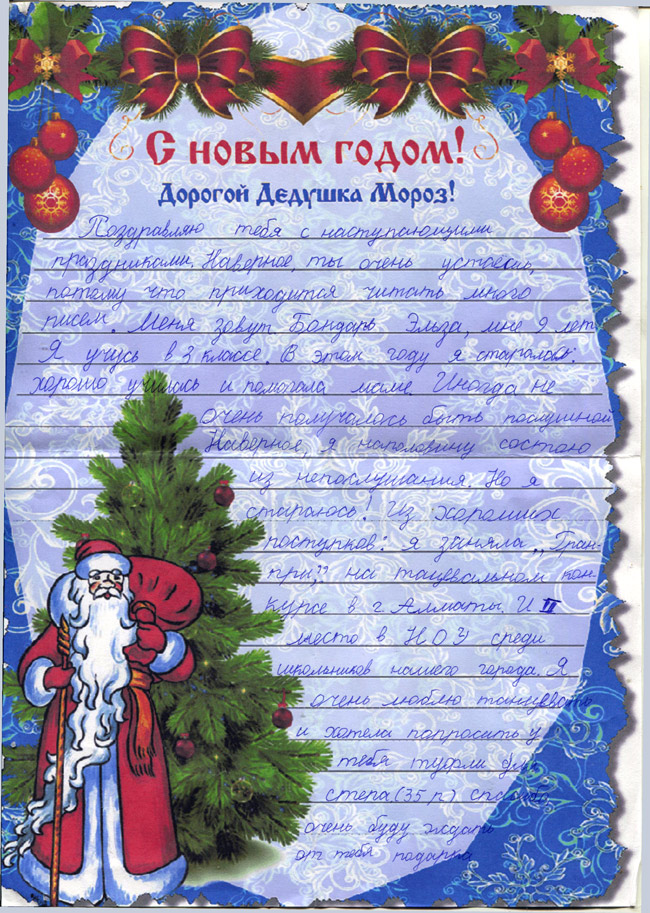 С новым годом!
Дорогой Дедушка Мороз!
Поздравляю тебя с наступающими
праздниками. Наверное, ты очень устаешь,
потому что приходится читать много
писем. Меня зовут Бондарь Эльза, мне 9 лет
Я учусь в 3 классе. В этом году я старалась:
хорошо училась и помогала маме. Иногда не
очень получалось быть послушной
Наверное, я наполовину состою
из непослушания. Но я
стараюсь! Из хороших
поступков: я заняла „Гран-
при" на танцевальном кон-
курсе в г Алматы. И II
место в НОЭ среди
школьников нашего города. Я
очень люблю танцевать
и хотела попросить у
тебя туфли для
степа (35 р.) спасибо
очень буду ждать
от тебя подарка